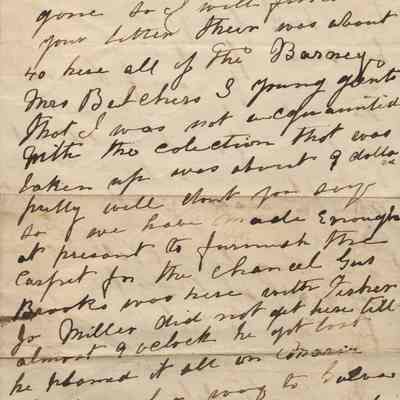 gone so I will
your letter their was about
40 here all of the Barneys
Mrs Belchers 3 young gents
that I was not acquainted
with the colection that was
taken up was about 9 dollars
pretty well dont you say
so we have made Enough
at present to furnish the
carpet for the chancel Gus
Brooks was here with Fisher
Jo Miller did not get here till
almost 9 oclock he got lost
he planed it all on
way to